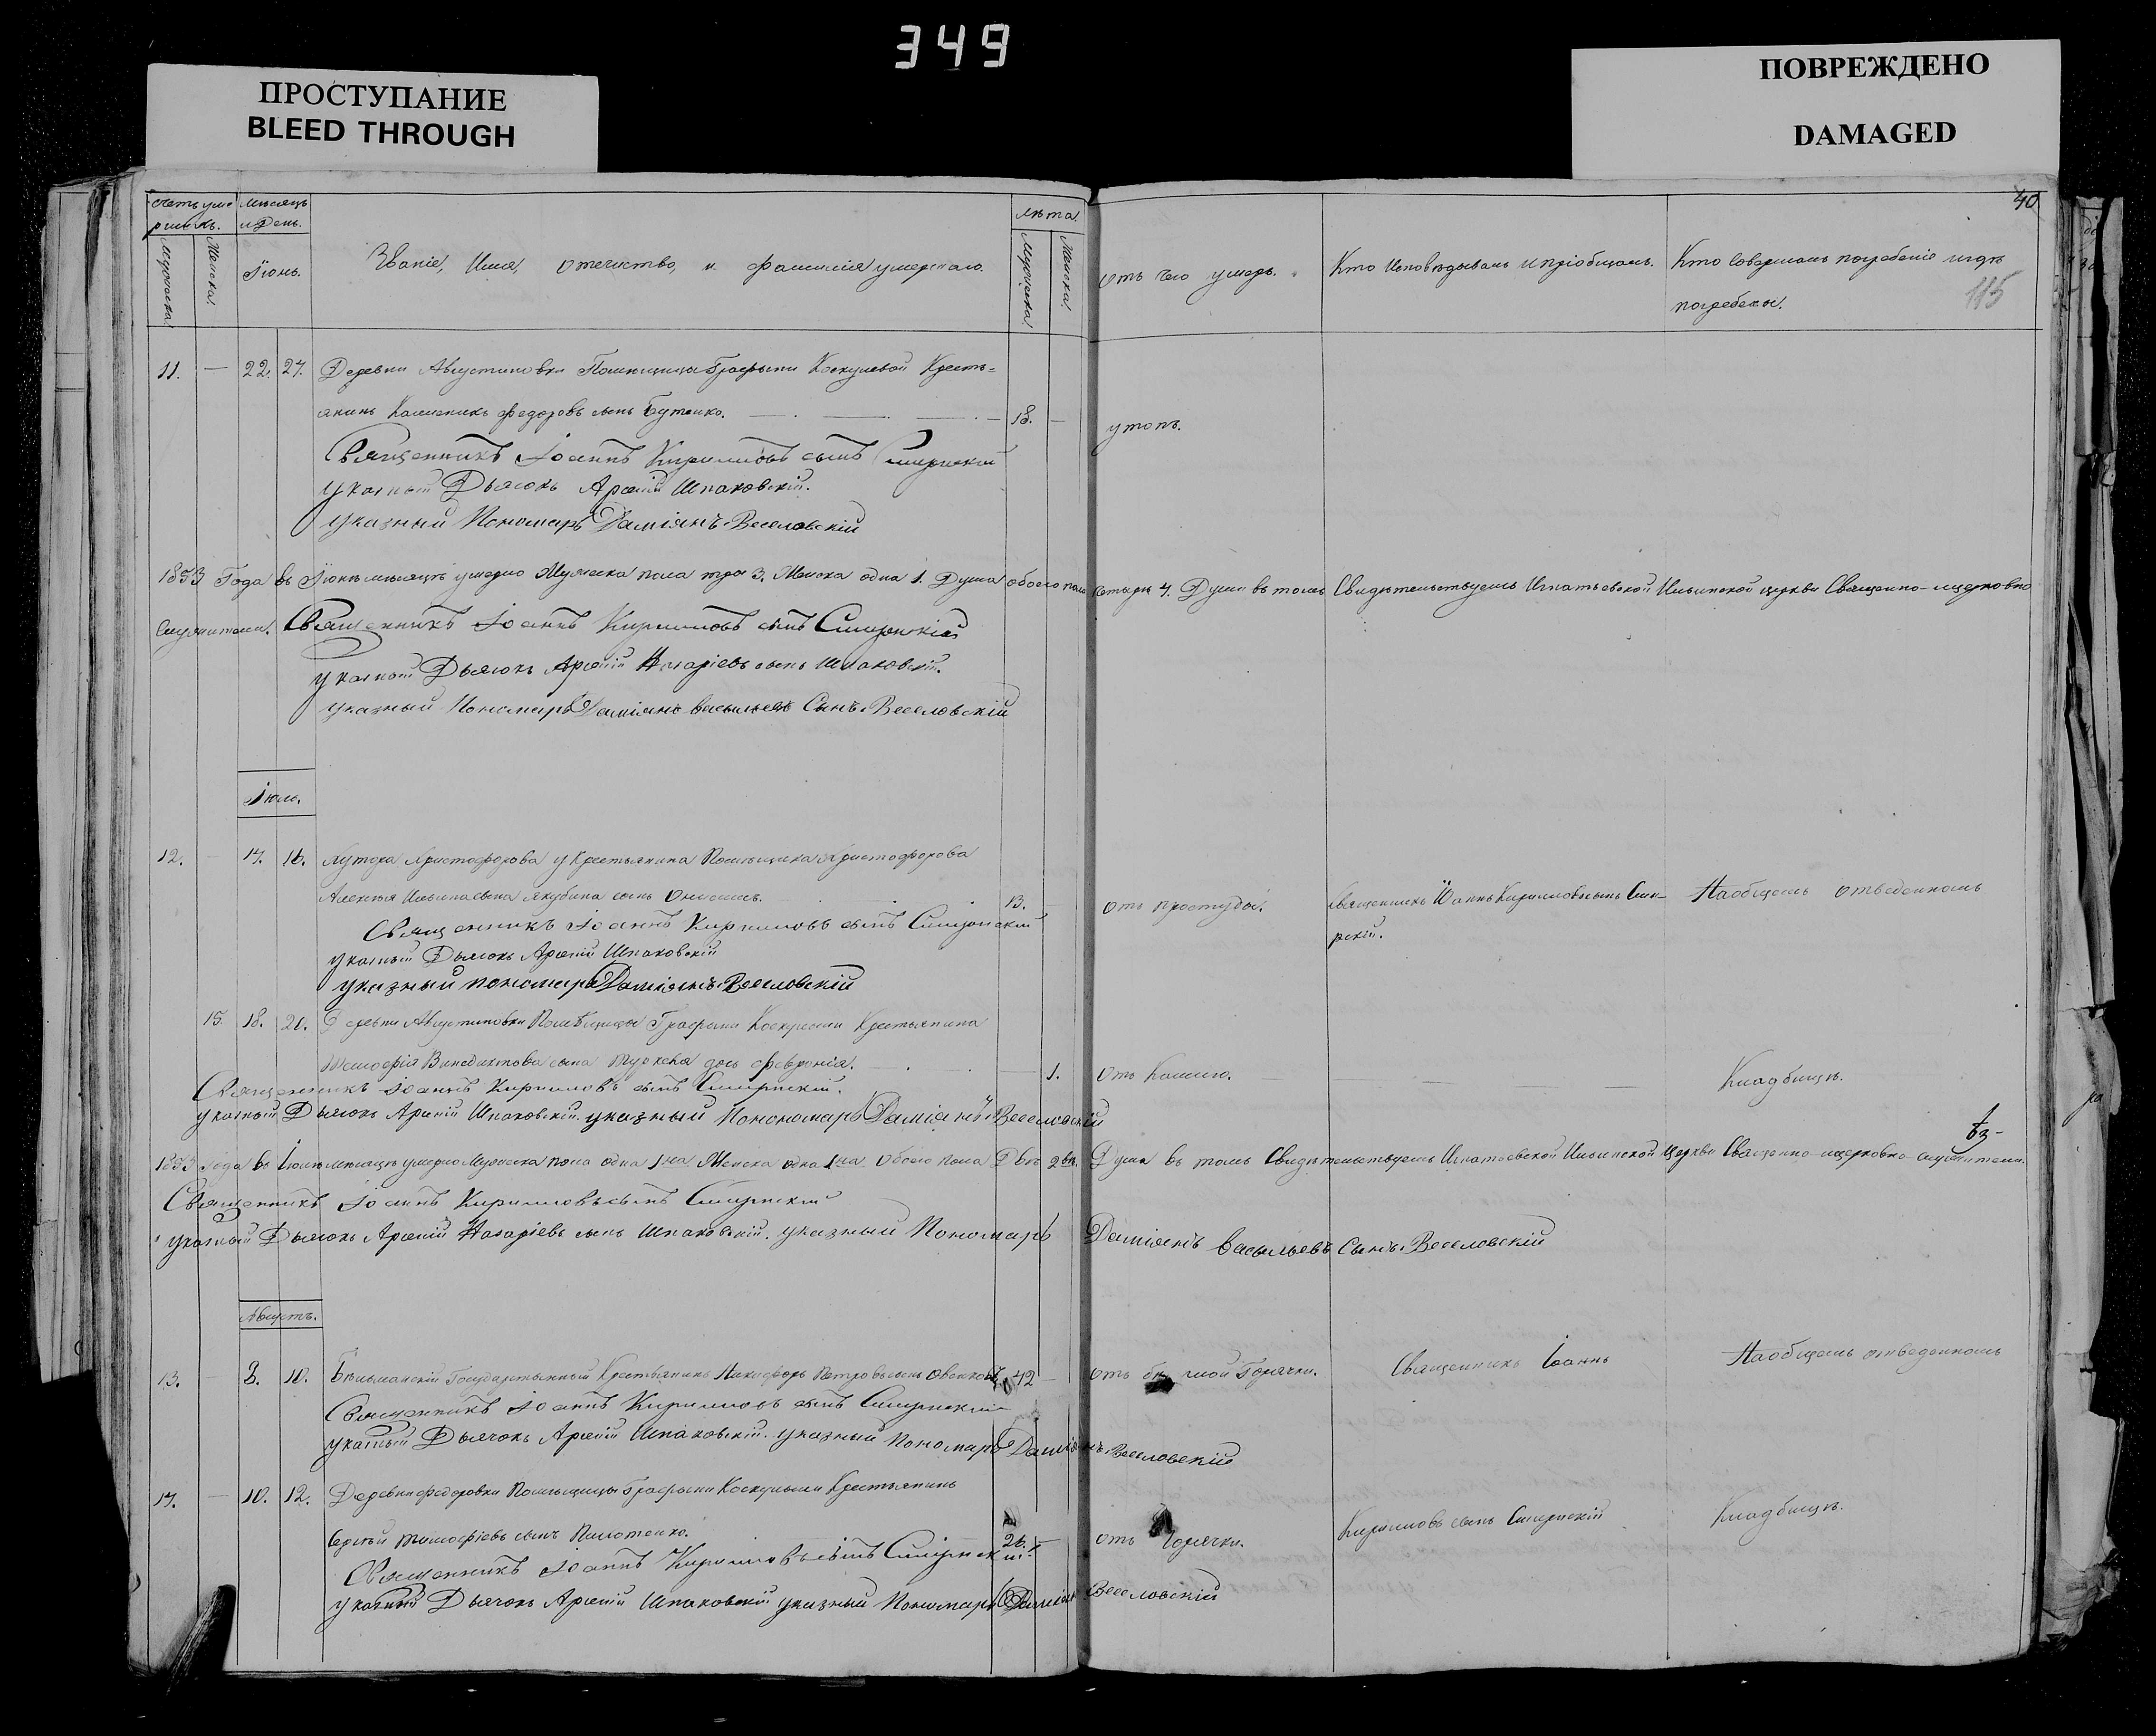 349
ПРОСТУПАНИЕ
BLEED THROUGH
ПОВРЕЖДЕНО
DAMAGED
40
115
Счетъ умершихъ.
Мѣсяцъ и День.
Мужеска
Женска.
Іюнь.
Званіе, Имя, отечество, и фамилія умершаго.
лѣта.
Мужеска
Женска.
отъ чего умеръ.
Кто Исповѣдывалъ и пріобщалъ.
Кто Совершалъ погребеніе и гдѣ
погребены.
11. — 22. 27. Деревни Августиновки Помѣщицы Графыни Крестъ-
янинъ Федоровъ сынъ Бутенко. 18. —
утопъ.
Священникъ Іоаннъ Кирилловъ сынъ Смирнскій
указный Дьячокъ Арсеній Шпаковскій.
указный Пономарь Даміянъ Веселовскій
1853 Года въ Іюнѣ мѣсяцѣ умерло Мужеска пола три 3. Женска одна 1. Душа обоего пола четыре 4. Души въ томъ Свидѣтельствуемъ Игнатьевской Ильинской церкви Священно-церковно
служители. Священникъ Іоаннъ Кирилловъ сынъ Смирнскій
указный Дьячокъ Арсеній Назаріевъ сынъ Шпаковскій.
указный Пономарь Даміянъ Васильевъ Сынъ Веселовскій
Іюль.
12. 14. 16. Хутора Христофорова у Крестьянина Помѣщика Христофорова
Алексѣя Ильина сына сынъ 13.
отъ простуды.
Священникъ Іоаннъ Кирилловъ сынъ Сми-
рскій.
На общемъ отведенномъ
Священникъ Іоаннъ Кирилловъ сынъ Смирнскій
указный Дьячокъ Арсеній Шпаковскій
указный пономарь Даміянъ Веселовскій
15. 18. 21. Деревни Августиновки Помѣщицы Графыни Крестьянина
Тимофея Венедиктова сына дочь Февронія. 1.
отъ Кашлю.
Кладбищѣ.
Священникъ Іоаннъ Кирилловъ сынъ Смирнскій.
указный Дьячокъ Арсеній Шпаковскій. указный Пономарь Даміянъ Веселовскій
1853 года въ Іюлѣ мѣсяцѣ умерло Мужеска пола одна 1на Женска одна 1на Обоего пола Двѣ 2вѣ. Душа въ томъ Свидѣтельствуемъ Игнатьевской Ильинской Церкви Священно-церковно-служители.
Священникъ Іоаннъ Кирилловъ сынъ Смирнскій
указный Дьячокъ Арсеній Назаріевъ сынъ Шпаковскій. указный Пономарь Даміянъ Васильевъ Сынъ Веселовскій
Августъ.
13. — 8. 10. Государственный Крестьянинъ Никифоръ Петровъ сынъ 42 —
отъ Горячки.
Священникъ Іоаннъ
На общемъ отведенномъ
Священникъ Іоаннъ Кирилловъ сынъ Смирнскій
указный Дьячокъ Арсеній Шпаковскій. указный Пономарь Даміянъ Веселовскій
14. — 10. 12. Деревни Федоровки Помѣщицы Графыни Крестьянинъ
Сергѣй Тимофіевъ сынъ 26. —
отъ Горячки.
Кирилловъ сынъ Смирнскій
Кладбищѣ.
Священникъ Іоаннъ Кирилловъ сынъ Смирнскій
указный Дьячокъ Арсеній Шпаковскій указный Пономарь Даміянъ Веселовскій